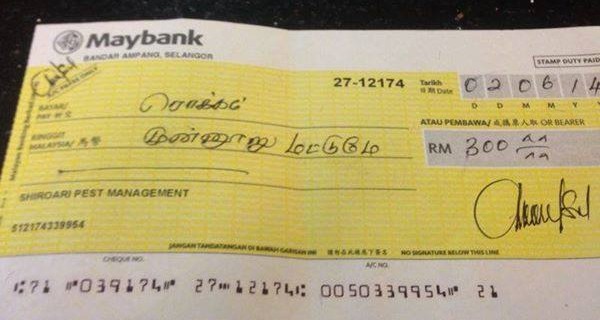 Maybank
BANDAR AMPANG, SELANGOR
STAMP DUTY PAID
A/C PAYEE ONLY
27-12174
Tarikh
日期 Date
0 2 0 6 1 4
D D M M Y
BAYAR/
PAY 祈交
ரொக்கம்
ATAU PEMBAWA/ 或携票人取 OR BEARER
RINGGIT
MALAYSIA/ 馬幣
முன்னூறு மட்டுமே
RM 300
SHIRDARI PEST MANAGEMENT
512174339954
JANGAN TANDATANGAN DI BAWAH GARISAN INI 請勿在此線底下簽名 NO SIGNATURE BELOW THIS LINE
CHEQUE NO.
A/C NO.
⑆71 ⑈039174⑈ 27⑉12174⑆ 0050339954⑈ 21